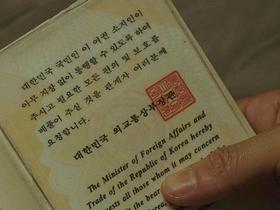 대한민국 국민인 이 여권 소지인이
아무 지장 없이 통행할 수 있도록 하여
주시고 필요한 모든 편의 및 보호를
베풀어 주실 것을 관계자 여러분께
요청합니다.
대한민국 외교통상부장관
The Minister of Foreign Affairs and
Trade of the Republic of Korea hereby
requests all those whom it may concern
bear